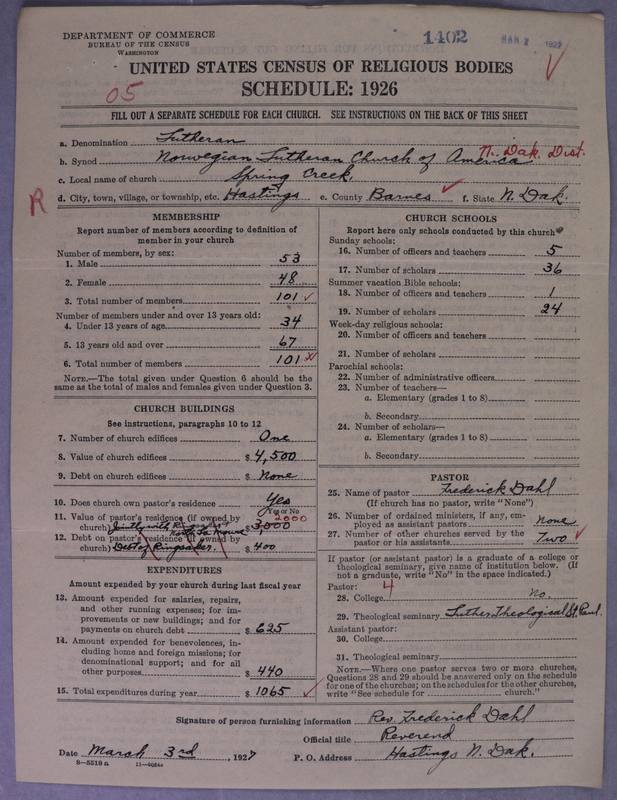 DEPARTMENT OF COMMERCE
BUREAU OF THE CENSUS
WASHINGTON
1402
MAR 1927
UNITED STATES CENSUS OF RELIGIOUS BODIES
SCHEDULE: 1926
05
FILL OUT A SEPARATE SCHEDULE FOR EACH CHURCH. SEE INSTRUCTIONS ON THE BACK OF THIS SHEET
a. Denomination Lutheran
b. Synod Norwegian Lutheran Church of America N. Dak. Dist.
c. Local name of church Spring Creek.
R
d. City, town, village, or township, etc. Hastings e. County Barnes f. State N. Dak.
MEMBERSHIP
Report number of members according to definition of
member in your church
Number of members, by sex:
1. Male 53
2. Female 48
3. Total number of members 101
Number of members under and over 13 years old:
4. Under 13 years of age 34
5. 13 years old and over 67
6. Total number of members 101
NOTE.—The total given under Question 6 should be the
same as the total of males and females given under Question 3.
CHURCH BUILDINGS
See instructions, paragraphs 10 to 12
7. Number of church edifices One
8. Value of church edifices $ 4,500
9. Debt on church edifices $ None
10. Does church own pastor's residence Yes
Yes or No
11. Value of pastor's residence (if owned by 2000
church) Jointly with Ringsaker $ 3,000
North La Moure
12. Debt on pastor's residence (if owned by
church) Debt of Ringsaker. $ 400
EXPENDITURES
Amount expended by your church during last fiscal year
13. Amount expended for salaries, repairs,
and other running expenses; for im-
provements or new buildings; and for
payments on church debt $ 625
14. Amount expended for benevolences, in-
cluding home and foreign missions; for
denominational support; and for all
other purposes $ 440
15. Total expenditures during year $ 1065
CHURCH SCHOOLS
Report here only schools conducted by this church
Sunday schools:
16. Number of officers and teachers 5
17. Number of scholars 36
Summer vacation Bible schools:
18. Number of officers and teachers 1
19. Number of scholars 24
Week-day religious schools:
20. Number of officers and teachers
21. Number of scholars
Parochial schools:
22. Number of administrative officers
23. Number of teachers—
a. Elementary (grades 1 to 8)
b. Secondary
24. Number of scholars—
a. Elementary (grades 1 to 8)
b. Secondary
PASTOR
25. Name of pastor Frederick Dahl
(If church has no pastor, write "None")
26. Number of ordained ministers, if any, em-
ployed as assistant pastors none
27. Number of other churches served by the
pastor or his assistants Two
If pastor (or assistant pastor) is a graduate of a college or
theological seminary, give name of institution below. (If
not a graduate, write "No" in the space indicated.)
Pastor: 4
28. College no.
29. Theological seminary Luther Theological St. Paul.
Assistant pastor:
30. College
31. Theological seminary
NOTE.—Where one pastor serves two or more churches,
Questions 28 and 29 should be answered only on the schedule
for one of the churches; on the schedules for the other churches,
write "See schedule for church."
Signature of person furnishing information Rev. Frederick Dahl
Official title Reverend
Date March 3rd, 1927 P. O. Address Hastings N. Dak.
8—5518 a